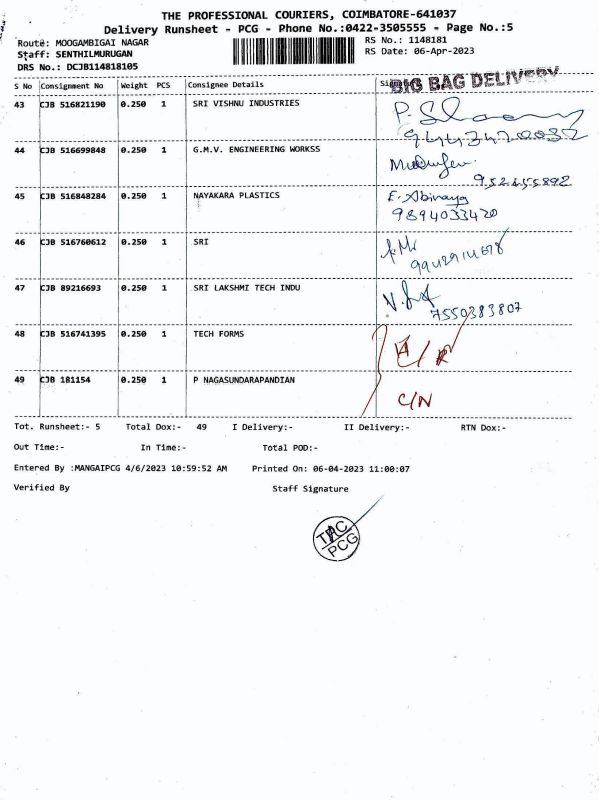 THE PROFESSIONAL COURIERS, COIMBATORE-641037
Delivery Runsheet - PCG - Phone No.:0422-3505555 - Page No.:5
Route: MOOGAMBIGAI NAGAR
RS No.: 1148181
Staff: SENTHILMURUGAN
RS Date: 06-Apr-2023
DRS No.: DCJB114818105
BIG BAG DELIVERY
S No Consignment No Weight PCS Consignee Details
43 CJB 516821190 0.250 1 SRI VISHNU INDUSTRIES
44 CJB 516699848 0.250 1 G.M.V. ENGINEERING WORKSS
45 CJB 516848284 0.250 1 NAYAKARA PLASTICS E. Abinaya
9894033420
46 CJB 516760612 0.250 1 SRI
47 CJB 89216693 0.250 1 SRI LAKSHMI TECH INDU
7550383807
48 CJB 516741395 0.250 1 TECH FORMS
49 CJB 181154 0.250 1 P NAGASUNDARAPANDIAN
C/N
Tot. Runsheet:- 5 Total Dox:- 49 I Delivery:- II Delivery:- RTN Dox:-
Out Time:- In Time:- Total POD:-
Entered By :MANGAIPCG 4/6/2023 10:59:52 AM Printed On: 06-04-2023 11:00:07
Verified By Staff Signature
PCG